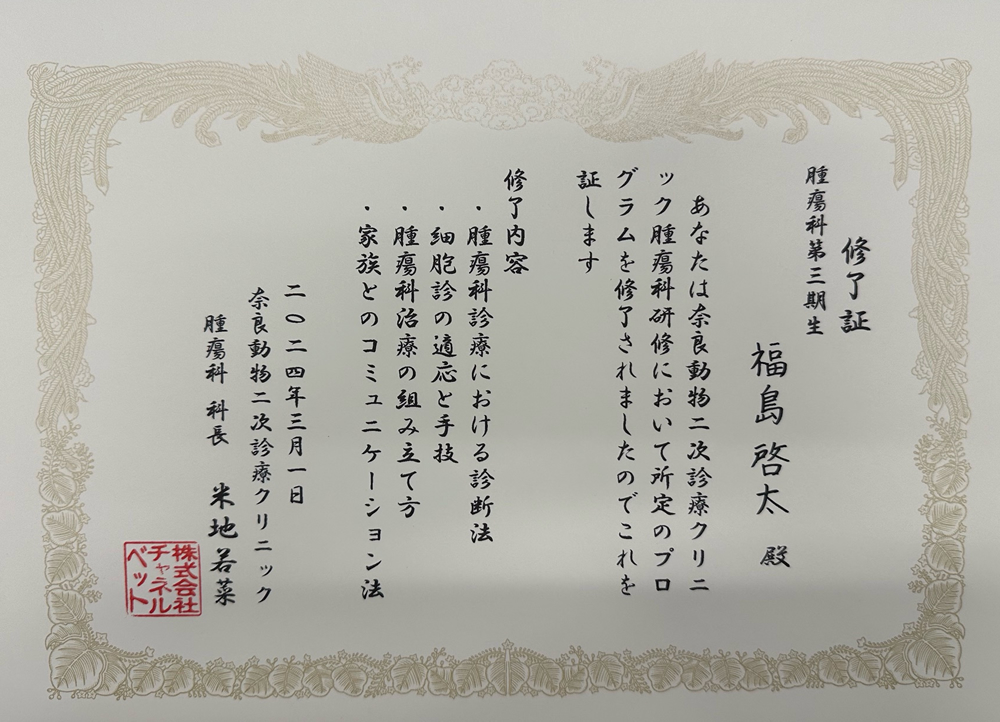 修了証
腫瘍科第三期生
福島啓太 殿
あなたは奈良動物二次診療クリニ
ック腫瘍科研修において所定のプロ
グラムを修了されましたのでこれを
証します
修了内容
・腫瘍科診療における診断法
・細胞診の適応と手技
・腫瘍科治療の組み立て方
・家族とのコミュニケーション法
二〇二四年三月一日
奈良動物二次診療クリニック
腫瘍科 科長 米地若菜
株式会社
チャネル
ベット